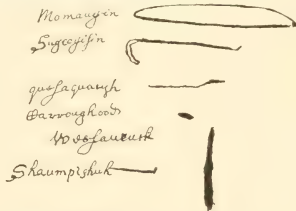 Momaugin
Sugcogisin
quosaquaush
Carroughood
Wesaucuck
Shaumpishuh